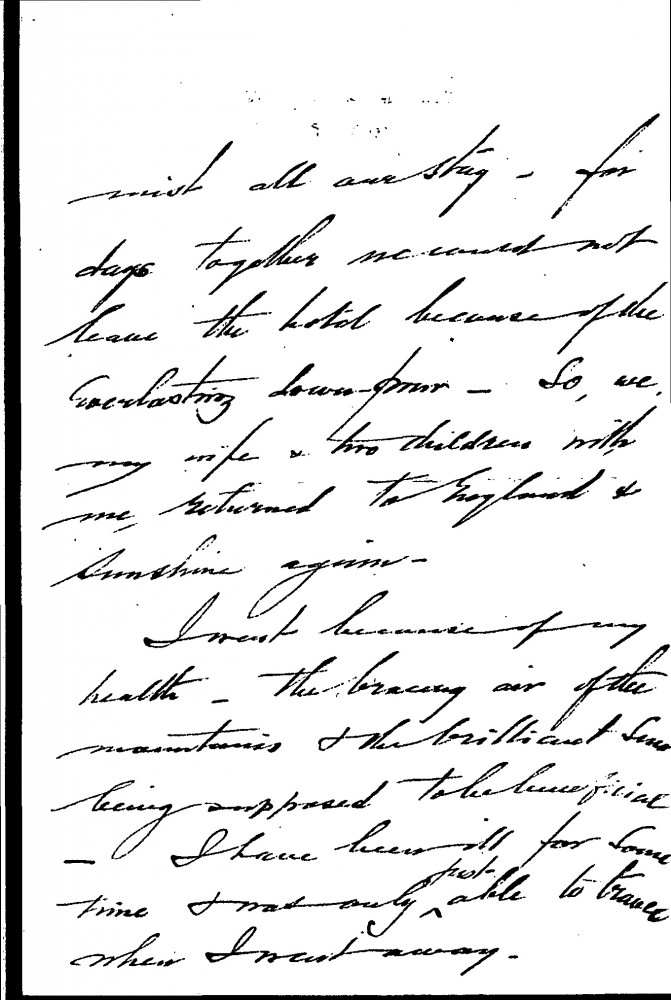 mist all our stay - for
days together we could not
leave the hotel because of the
everlasting down-pour - So, we,
my wife & two children with
me, returned to England &
sunshine again -
I went because of my
health - the bracing air of the
mountains & the brilliant Sun
being supposed to be beneficial
- I have been ill for some
time & was only just able to travel
when I went away.